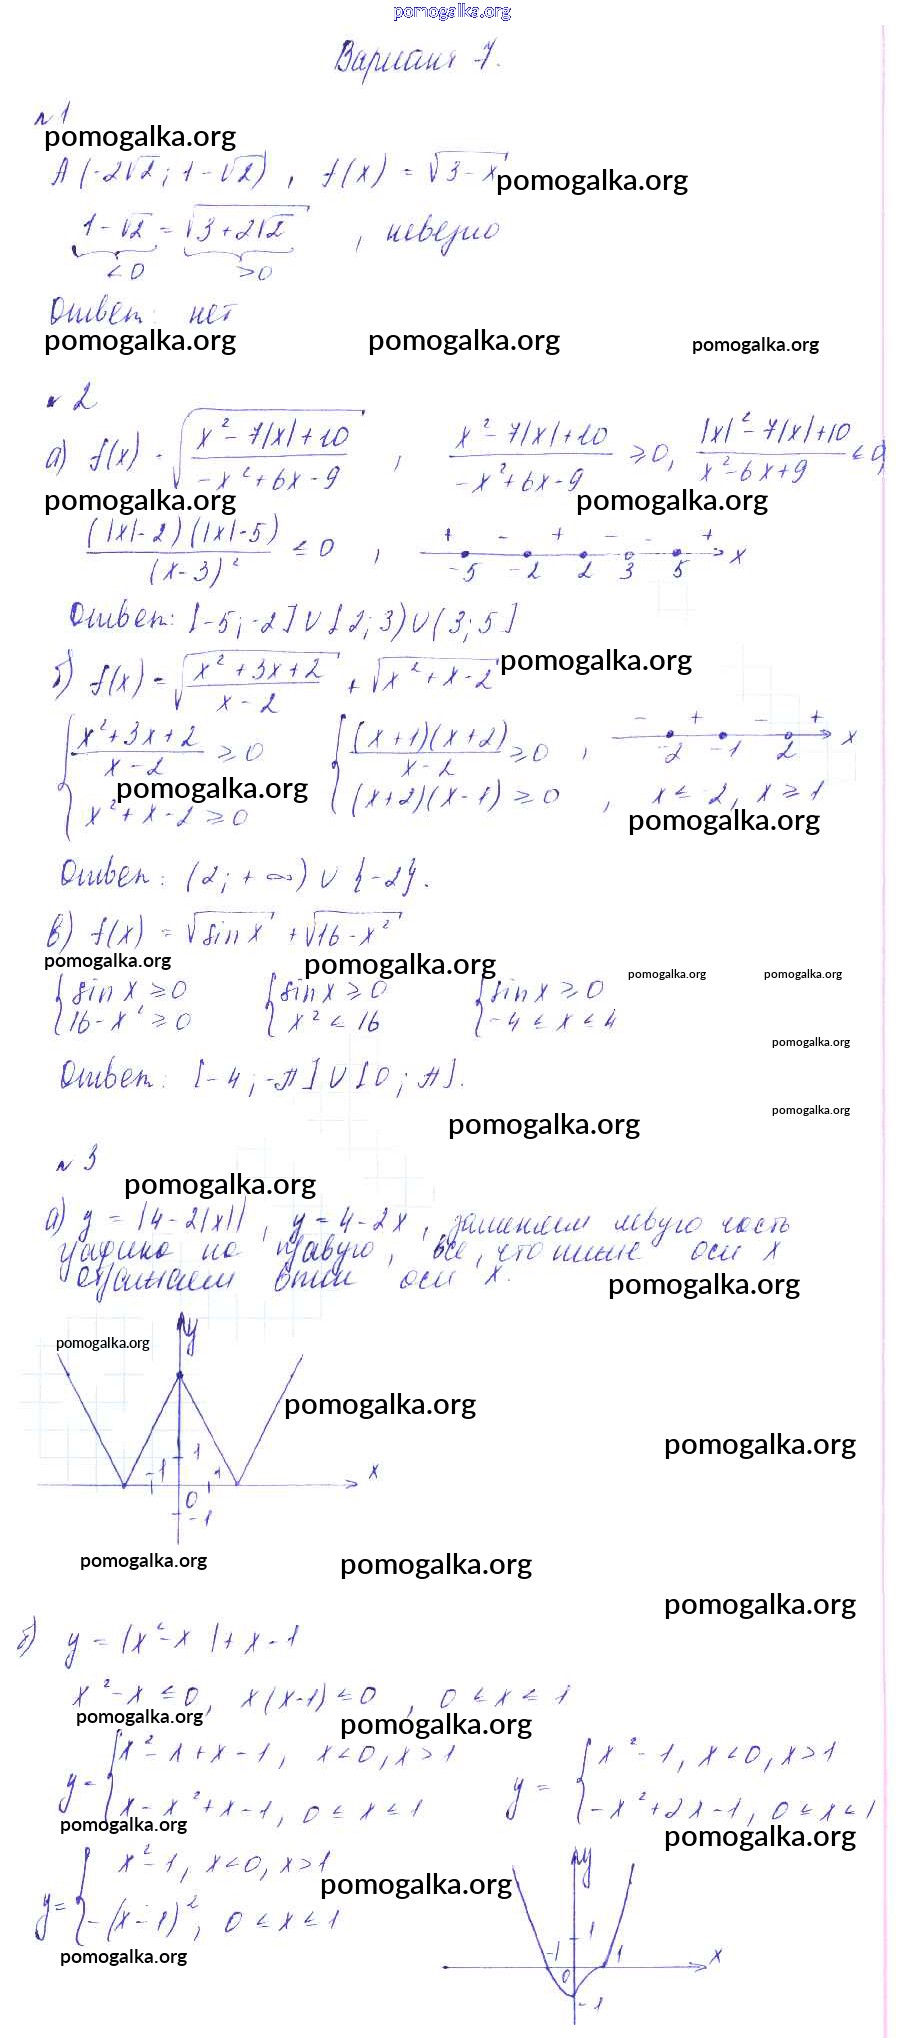 pomogalka.org
Вариант 7.
№1
pomogalka.org
A (-2√2; 1-√2), f(x) = √(3-x)
pomogalka.org
1-√2 = √(3+2√2), неверно
<0 >0
Ответ: нет
pomogalka.org pomogalka.org pomogalka.org
№2
а) f(x) = √((x²-7|x|+10)/(-x²+6x-9)), (x²-7|x|+10)/(-x²+6x-9) ≥ 0, (|x|²-7|x|+10)/(x²-6x+9) ≤ 0,
pomogalka.org pomogalka.org
((|x|-2)(|x|-5))/(x-3)² ≤ 0, + - + - - + x
-5 -2 2 3 5
Ответ: [-5; -2] ∪ [2; 3) ∪ (3; 5]
б) f(x) = √((x²+3x+2)/(x-2)) + √(x²+x-2)
pomogalka.org
{(x²+3x+2)/(x-2) ≥ 0 {((x+1)(x+2))/(x-2) ≥ 0, - + - + x
-2 -1 2
pomogalka.org
x²+x-2 ≥ 0 (x+2)(x-1) ≥ 0, x ≤ -2, x ≥ 1
pomogalka.org
Ответ: (2; +∞) ∪ {-2}.
в) f(x) = √(sin x) + √(16-x²)
pomogalka.org pomogalka.org pomogalka.org pomogalka.org
{sin x ≥ 0 {sin x ≥ 0 {sin x ≥ 0
16-x² ≥ 0 x² ≤ 16 -4 ≤ x ≤ 4
pomogalka.org
Ответ: [-4; -π] ∪ [0; π].
pomogalka.org
pomogalka.org
№3
pomogalka.org
а) y = |4-2|x||, y = 4-2x, заменяем левую часть
графика на правую, все, что ниже оси x
отражаем отн. оси x.
pomogalka.org
y
pomogalka.org
pomogalka.org
pomogalka.org
1
-1 1 x
0
-1
pomogalka.org pomogalka.org
pomogalka.org
б) y = |x²-x|+x-1
x²-x ≤ 0, x(x-1) ≤ 0, 0 ≤ x ≤ 1
pomogalka.org pomogalka.org
y = {x²-x+x-1, x<0, x>1 y = {x²-1, x<0, x>1
x-x²+x-1, 0 ≤ x ≤ 1 -x²+2x-1, 0 ≤ x ≤ 1
pomogalka.org pomogalka.org
y = {x²-1, x<0, x>1
y
pomogalka.org
-(x-1)², 0 ≤ x ≤ 1
1
pomogalka.org
-1 1 x
0
-1